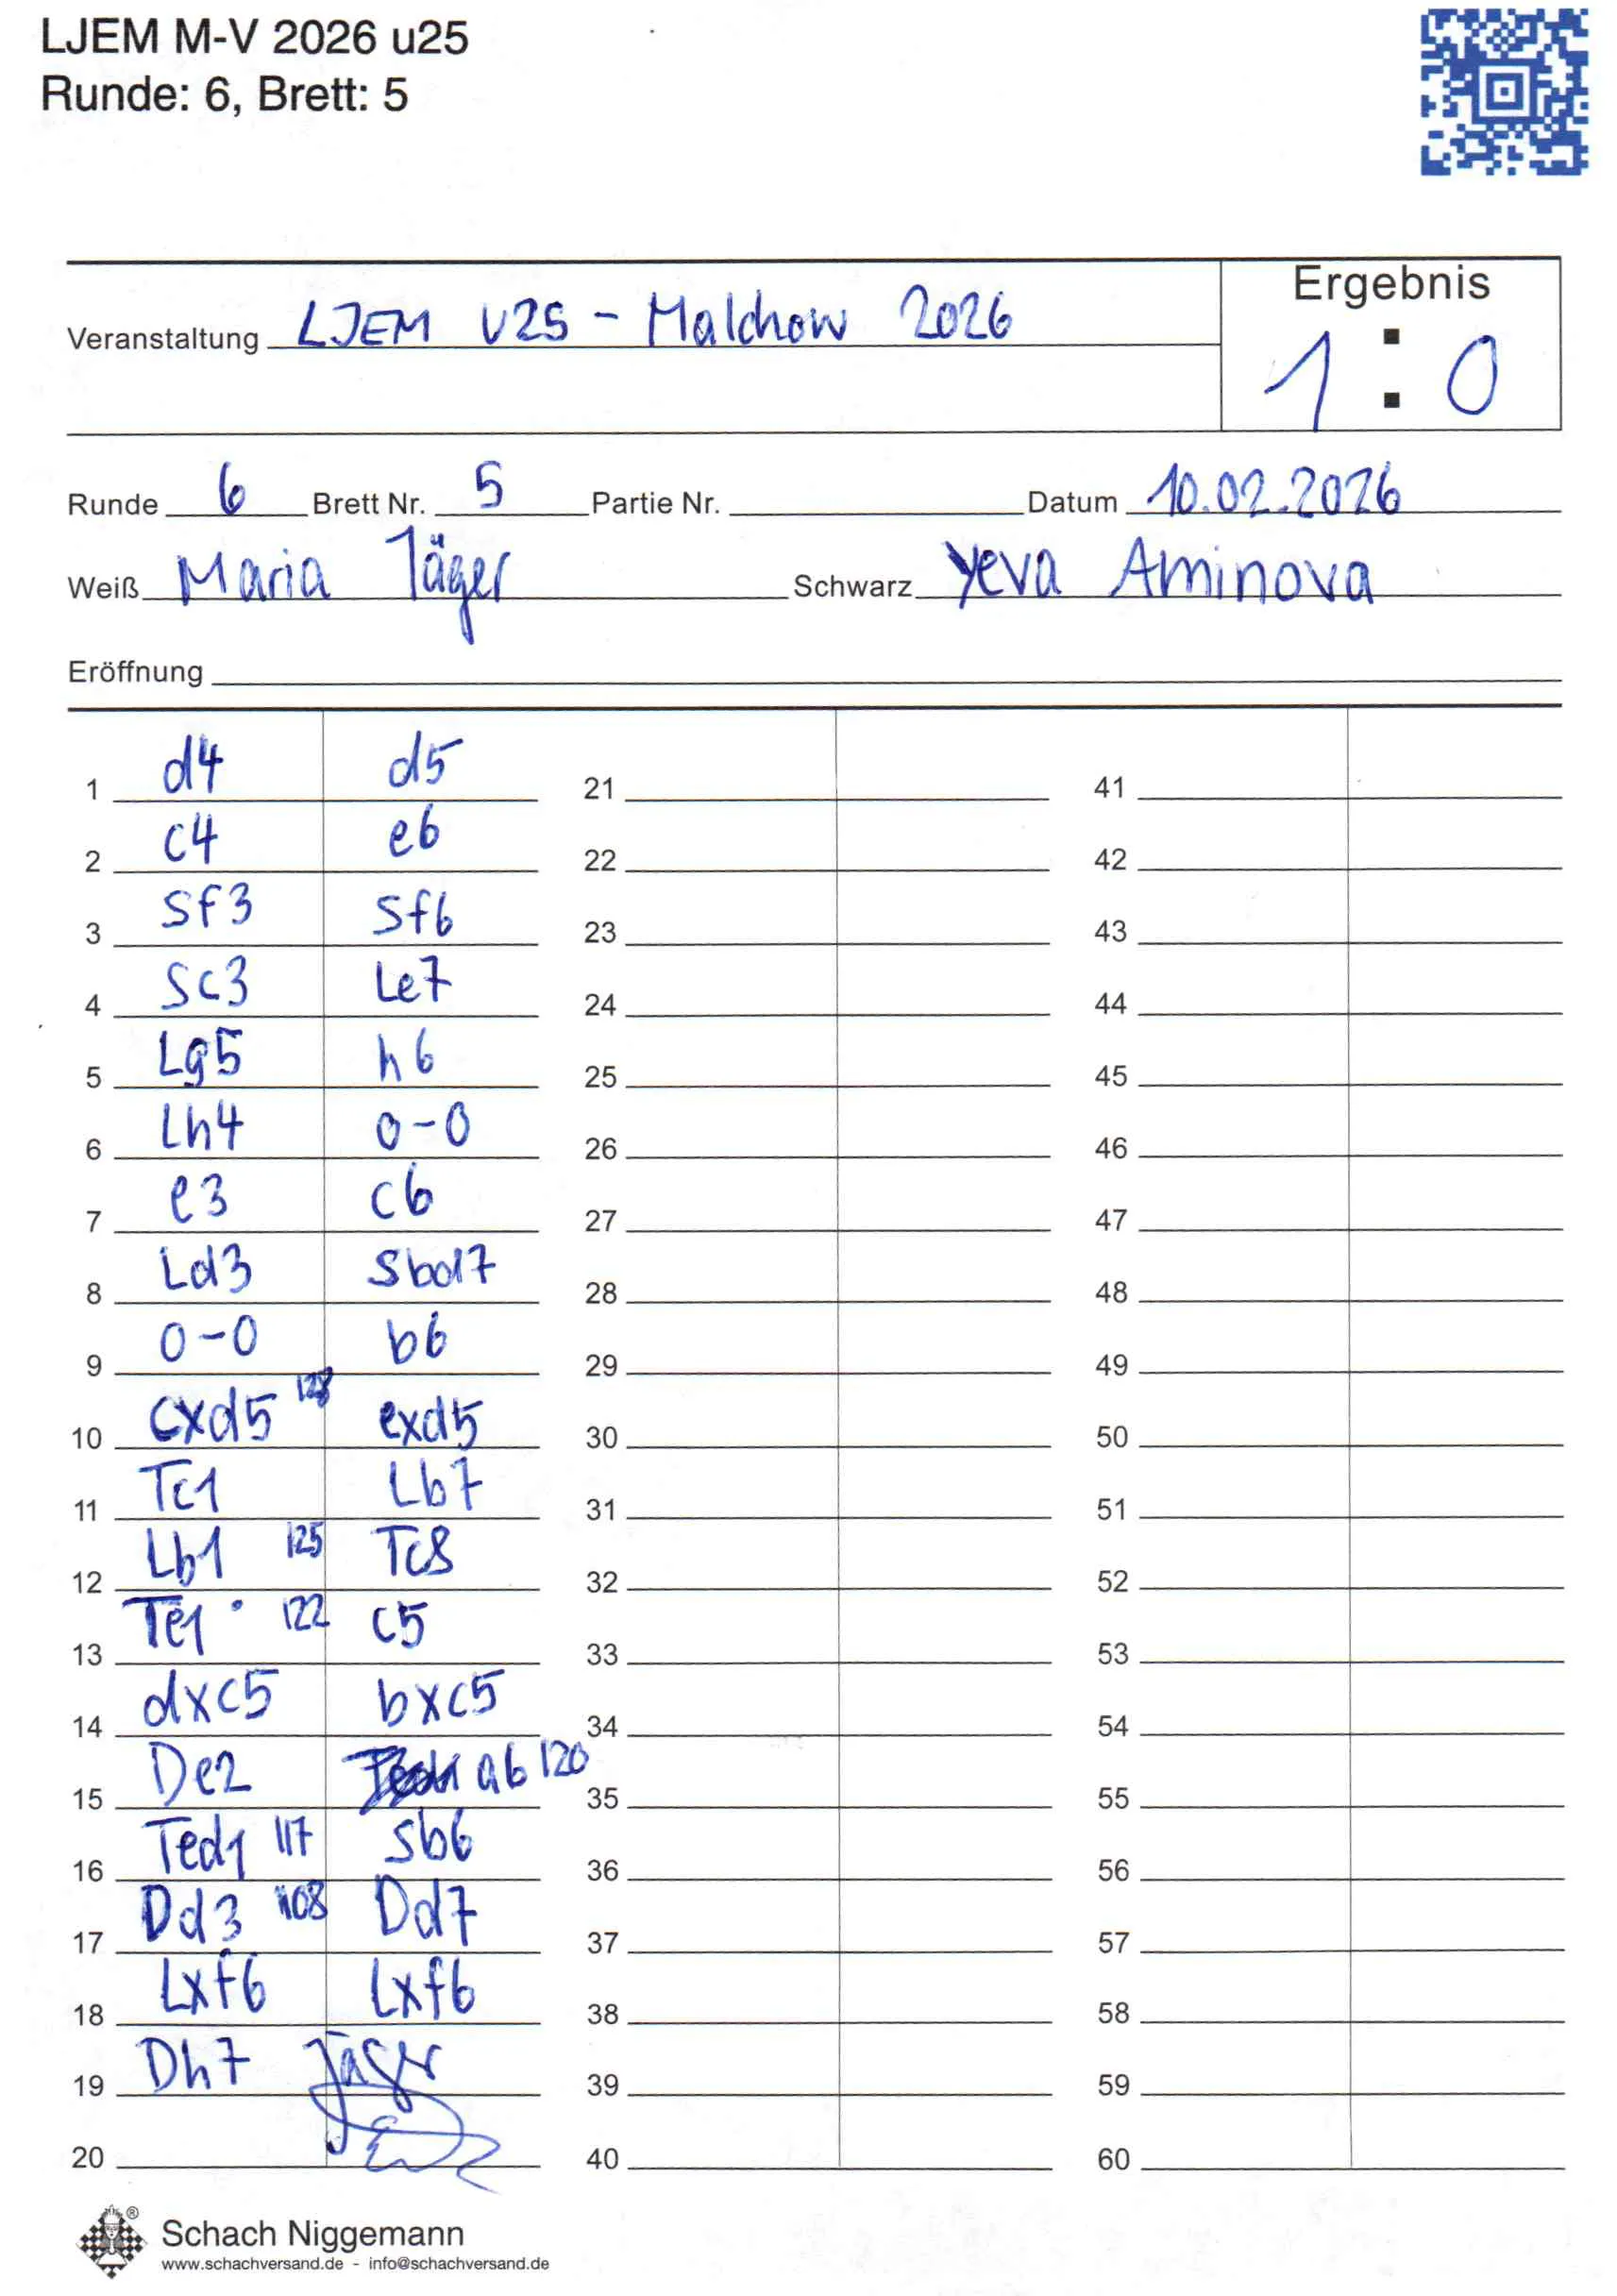 LJEM M-V 2026 u25
Runde: 6, Brett: 5
Ergebnis
Veranstaltung LJEM U25 - Malchow 2026
1 : 0
Runde 6 Brett Nr. 5 Partie Nr. Datum 10.02.2026
Weiß Maria Jäger Schwarz Yeva Aminova
Eröffnung
1 d4 d5 21 41
2 c4 e6 22 42
3 Sf3 Sf6 23 43
4 Sc3 Le7 24 44
5 Lg5 h6 25 45
6 Lh4 0-0 26 46
7 e3 c6 27 47
8 Ld3 Sbd7 28 48
9 0-0 b6 29 49
10 cxd5 exd5 30 50
11 Tc1 Lb7 31 51
12 Lb1 125 Tc8 32 52
13 Te1 122 c5 33 53
14 dxc5 bxc5 34 54
15 De2 a6 120 35 55
16 Ted1 117 Sb6 36 56
17 Dd3 108 Dd7 37 57
18 Lxf6 Lxf6 38 58
19 Dh7 Jäger 39 59
20 40 60
Schach Niggemann ®
www.schachversand.de - info@schachversand.de